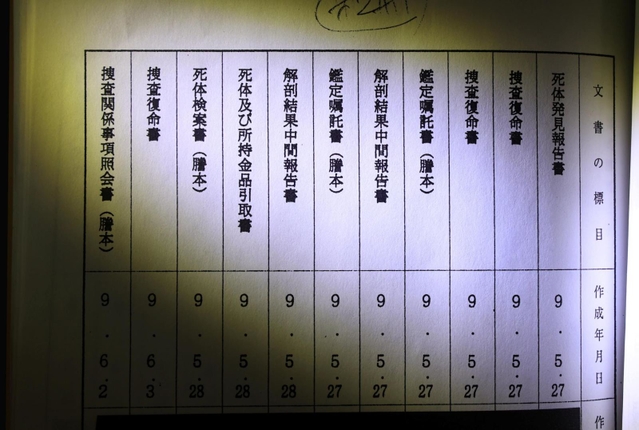 文書の標目
作成年月日
作
死体発見報告書
9・5・27
捜査復命書
9・5・27
捜査復命書
9・5・27
鑑定嘱託書（謄本）
9・5・27
解剖結果中間報告書
9・5・27
鑑定嘱託書（謄本）
9・5・27
解剖結果中間報告書
9・5・28
死体及び所持金品引取書
9・5・28
死体検案書（謄本）
9・5・28
捜査復命書
9・6・3
捜査関係事項照会書（謄本）
9・6・2